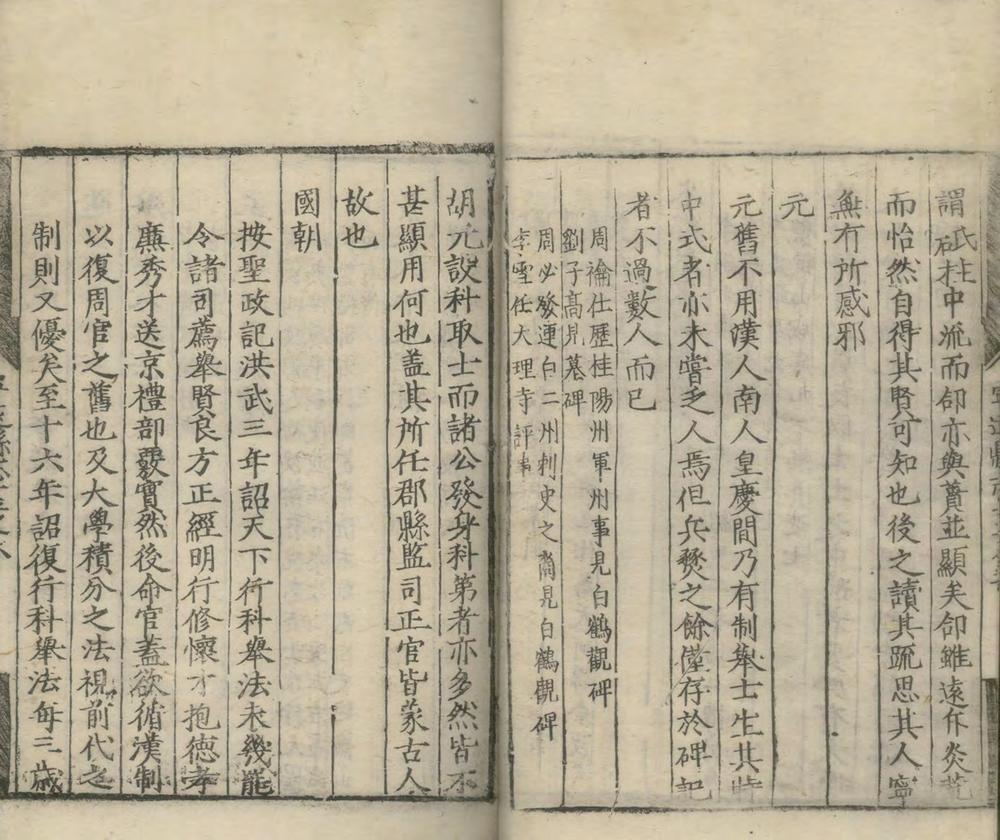 謂砥柱中流而郃亦與蕢並顯矣郃雖遠斥炎荒
而怡然自得其賢可知也後之讀其䟽思其人寧
無有所感邪
元
元舊不用漢人南人皇慶間乃有制舉士生其時
中式者亦未嘗乏人焉但兵燹之餘僅存於碑記
者不過數人而已
周禴仕歷桂陽州軍州事見白鶴觀碑
劉子高見墓碑
周必發連白二州刺史之裔見白鶴觀碑
李雲任大理寺評事
胡元設科取士而諸公發身科第者亦多然皆不
甚顯用何也盖其所任郡縣監司正官皆蒙古人
故也
國朝
按聖政記洪武三年詔天下行科舉法未幾罷
令諸司薦舉賢良方正經明行修懷才抱德孝
廉秀才送京禮部覈實然後命官蓋欲循漢制
以復周官之舊也及大學積分之法視前代之
制則又優矣至十六年詔復行科舉法每三歲